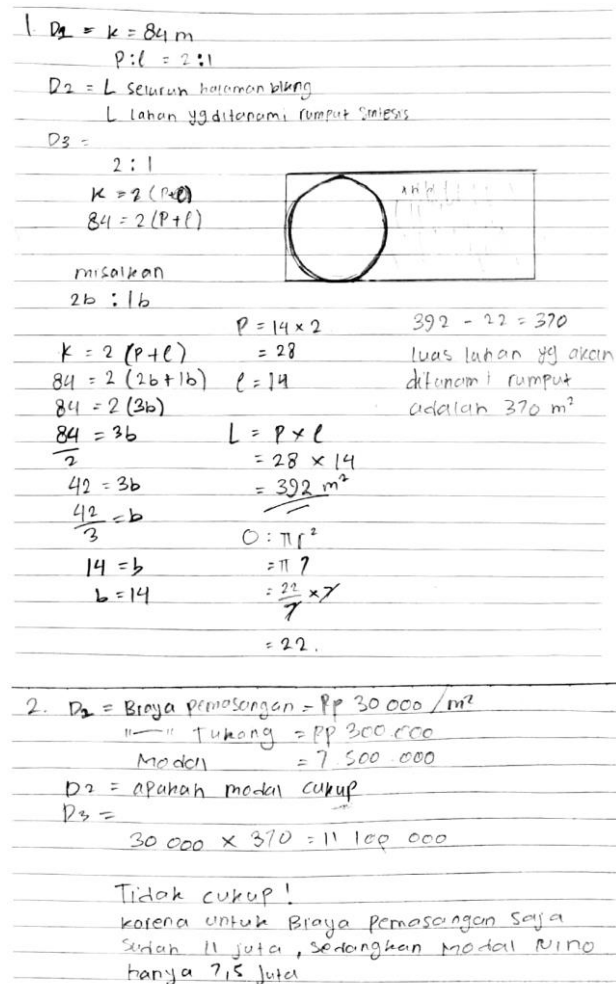 1. D1 = k = 84 m
P : l = 2 : 1
D2 = L seluruh halaman blkng
L lahan yg ditanami rumput Sintesis
D3 =
2 : 1
k = 2 (P+l)
84 = 2 (P+l)
misalkan
2b : 1b
k = 2 (P+l)
84 = 2 (2b+1b)
84 = 2 (3b)
84/2 = 3b
42 = 3b
42/3 = b
14 = b
b = 14
P = 14 × 2
= 28
l = 14
L = P × l
= 28 × 14
= 392 m²
O : πr²
= π 7
= 22/7 × 7
= 22.
392 - 22 = 370
luas lahan yg akan
ditanami rumput
adalah 370 m²
2. D1 = Biaya pemasangan = Rp 30 000 /m²
"—" Tukang = Rp 300.000
Modal = 7.500.000
D2 = apakah modal cukup
D3 =
30 000 × 370 = 11 100 000
Tidak cukup!
karena untuk Biaya pemasangan saja
sudah 11 juta, sedangkan modal Nino
hanya 7,5 juta